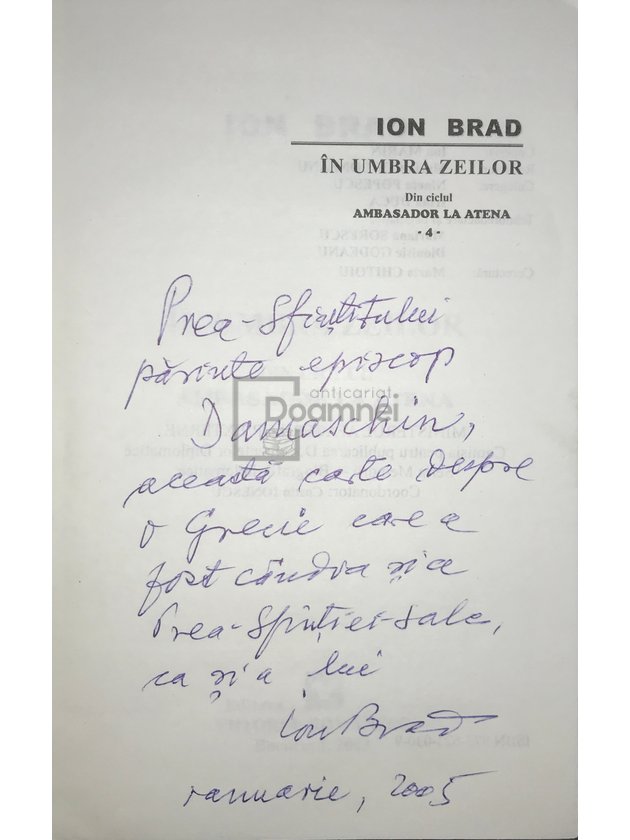 ION BRAD
ÎN UMBRA ZEILOR
Din ciclul
AMBASADOR LA ATENA
- 4 -
Prea-Sfințitului
părinte episcop
anticariat
Doamnei
Damaschin,
această carte despre
o Grecie care a
fost cândva și a
Prea-Sfinției-Sale,
ca și a lui
Ion Brad
ianuarie, 2005